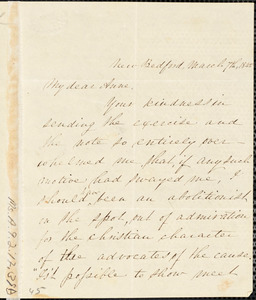 New Bedford, March 7th, 18
My dear Anne,
Your kindness in
sending the exercise and
the note so entirely over-
whelmed me, that, if any such
motives had swayed me, I
should been an abolitionist
on the spot, out of admiration
for the christian character
of the advocates of the cause.
possible to show meet
45